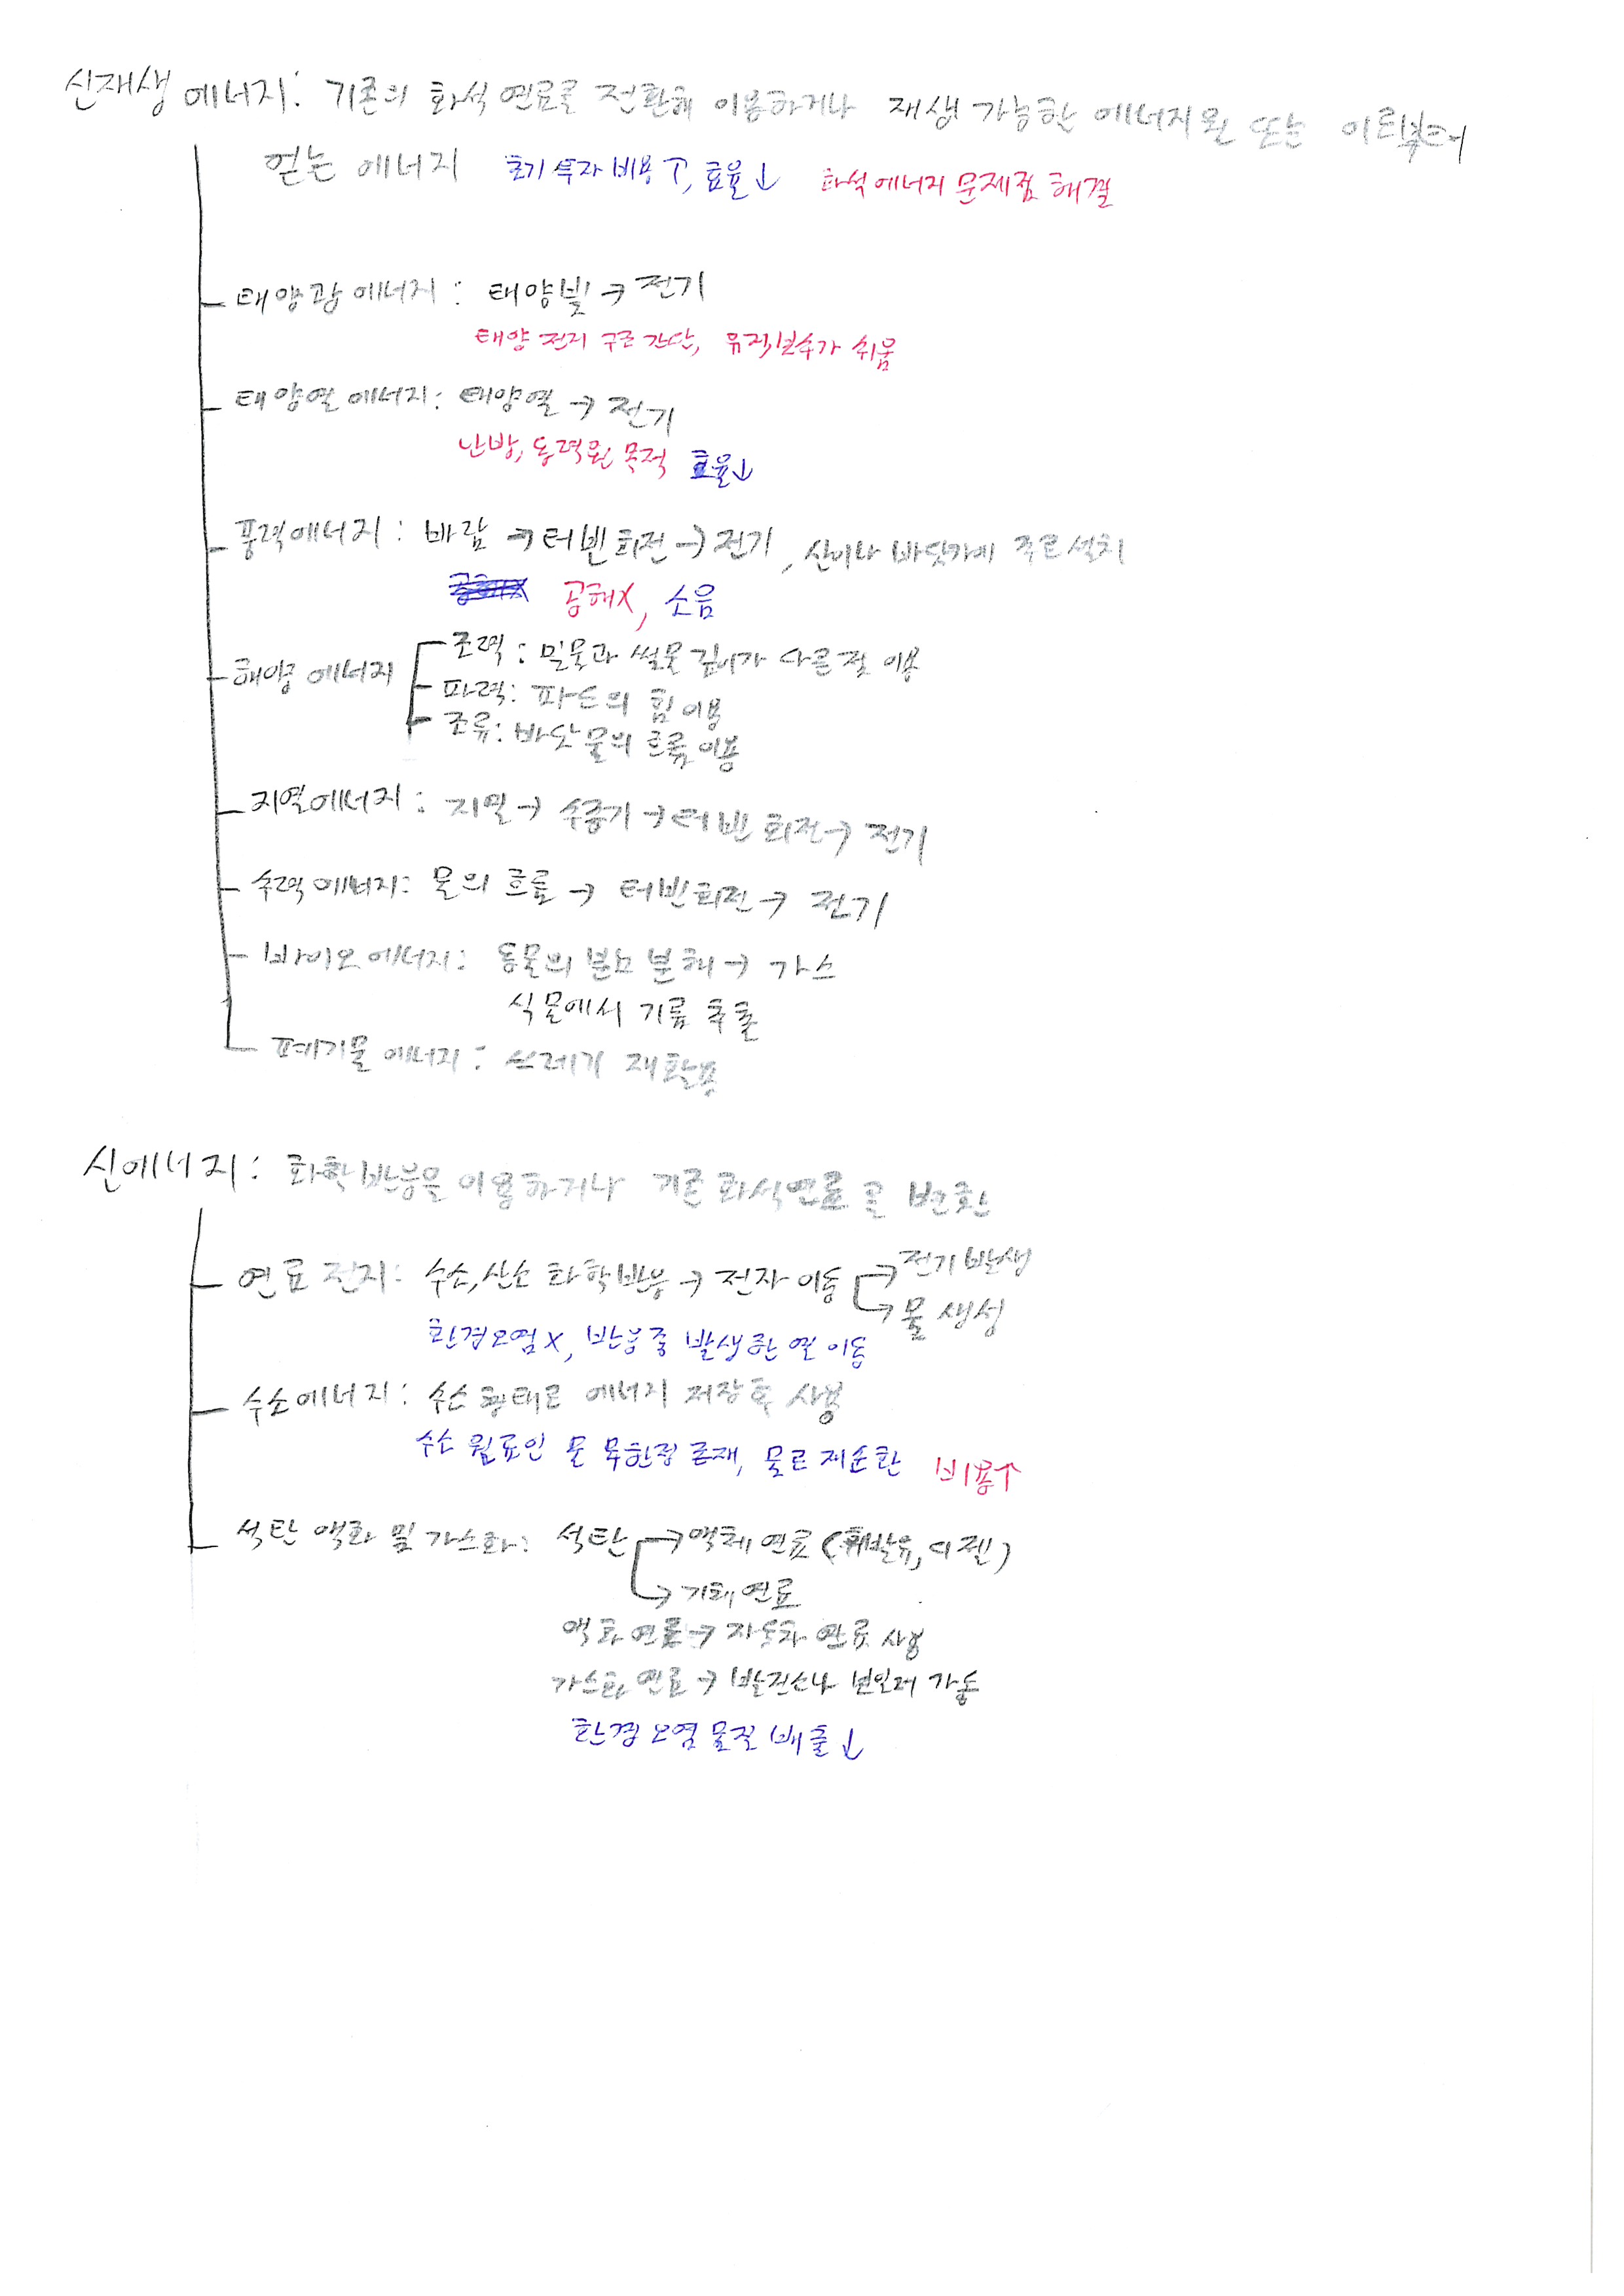 신재생 에너지: 기존의 화석 연료를 전환해 이용하거나 재생 가능한 에너지원 또는 이로부터
얻는 에너지 초기 투자 비용↑, 효율↓ 화석에너지 문제점 해결
태양광 에너지: 태양빛→전기
태양 전지 구조 간단, 유지,보수가 쉬움
태양열 에너지: 태양열→전기
난방, 동력원 목적 효율↓
풍력에너지: 바람→터빈회전→전기, 산이나 바닷가에 주로 설치
공해X, 소음
해양 에너지
조력: 밀물과 썰물 깊이가 다른점 이용
파력: 파도의 힘 이용
조류: 바닷물의 흐름 이용
지열에너지: 지열→수증기→터빈 회전→전기
수력 에너지: 물의 흐름→터빈회전→전기
바이오 에너지: 동물의 분뇨 분해→가스
식물에서 기름 추출
폐기물 에너지: 쓰레기 재활용
신에너지: 화학반응을 이용하거나 기존 화석연료를 변환
연료 전지: 수소,산소 화학반응→전자 이동→전기 발생
→물 생성
환경오염X, 반응 중 발생한 열 이동
수소에너지: 수소 형태로 에너지 저장 후 사용
수소 원료인 물 무한정 존재, 물로 재순환 비용↑
석탄 액화 및 가스화: 석탄→액체 연료(휘발유,디젤)
→기체 연료
액화 연료→자동차 연료 사용
가스화 연료→발전소나 보일러 가동
환경 오염 물질 배출↓